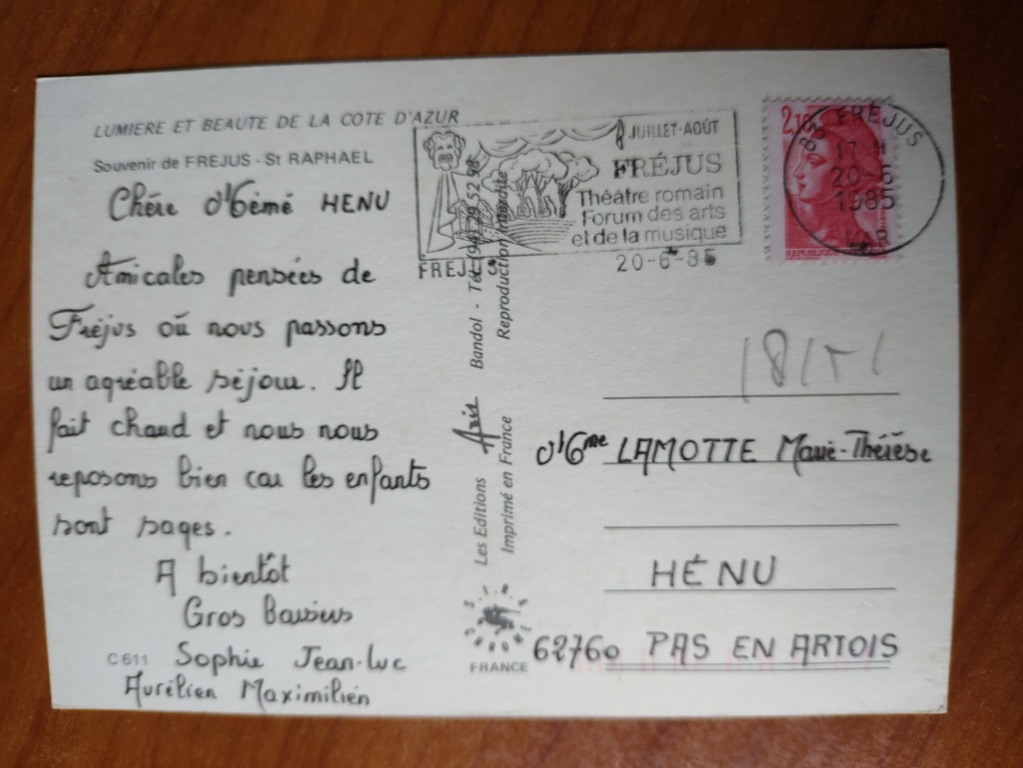 LUMIERE ET BEAUTE DE LA COTE D'AZUR
Souvenir de FREJUS - St RAPHAEL
Chère Mémé HENU
Amicales pensées de
Fréjus où nous passons
un agréable séjour. Il
fait chaud et nous nous
reposons bien car les enfants
sont sages.
A bientôt
Gros Baisers
C 611 Sophie Jean-Luc
Aurélien Maximilien
JUILLET-AOÛT
FRÉJUS
Théâtre romain
Forum des arts
et de la musique
20-6-85
2,10
83 FRÉJUS
17 H
20-6
1985
VAR
Les Editions Axis Bandol - Tél. (94) 29 52 98
Imprimé en France Reproduction interdite
FRANCE
Mme LAMOTTE Marie-Thérèse
HÉNU
62760 PAS EN ARTOIS